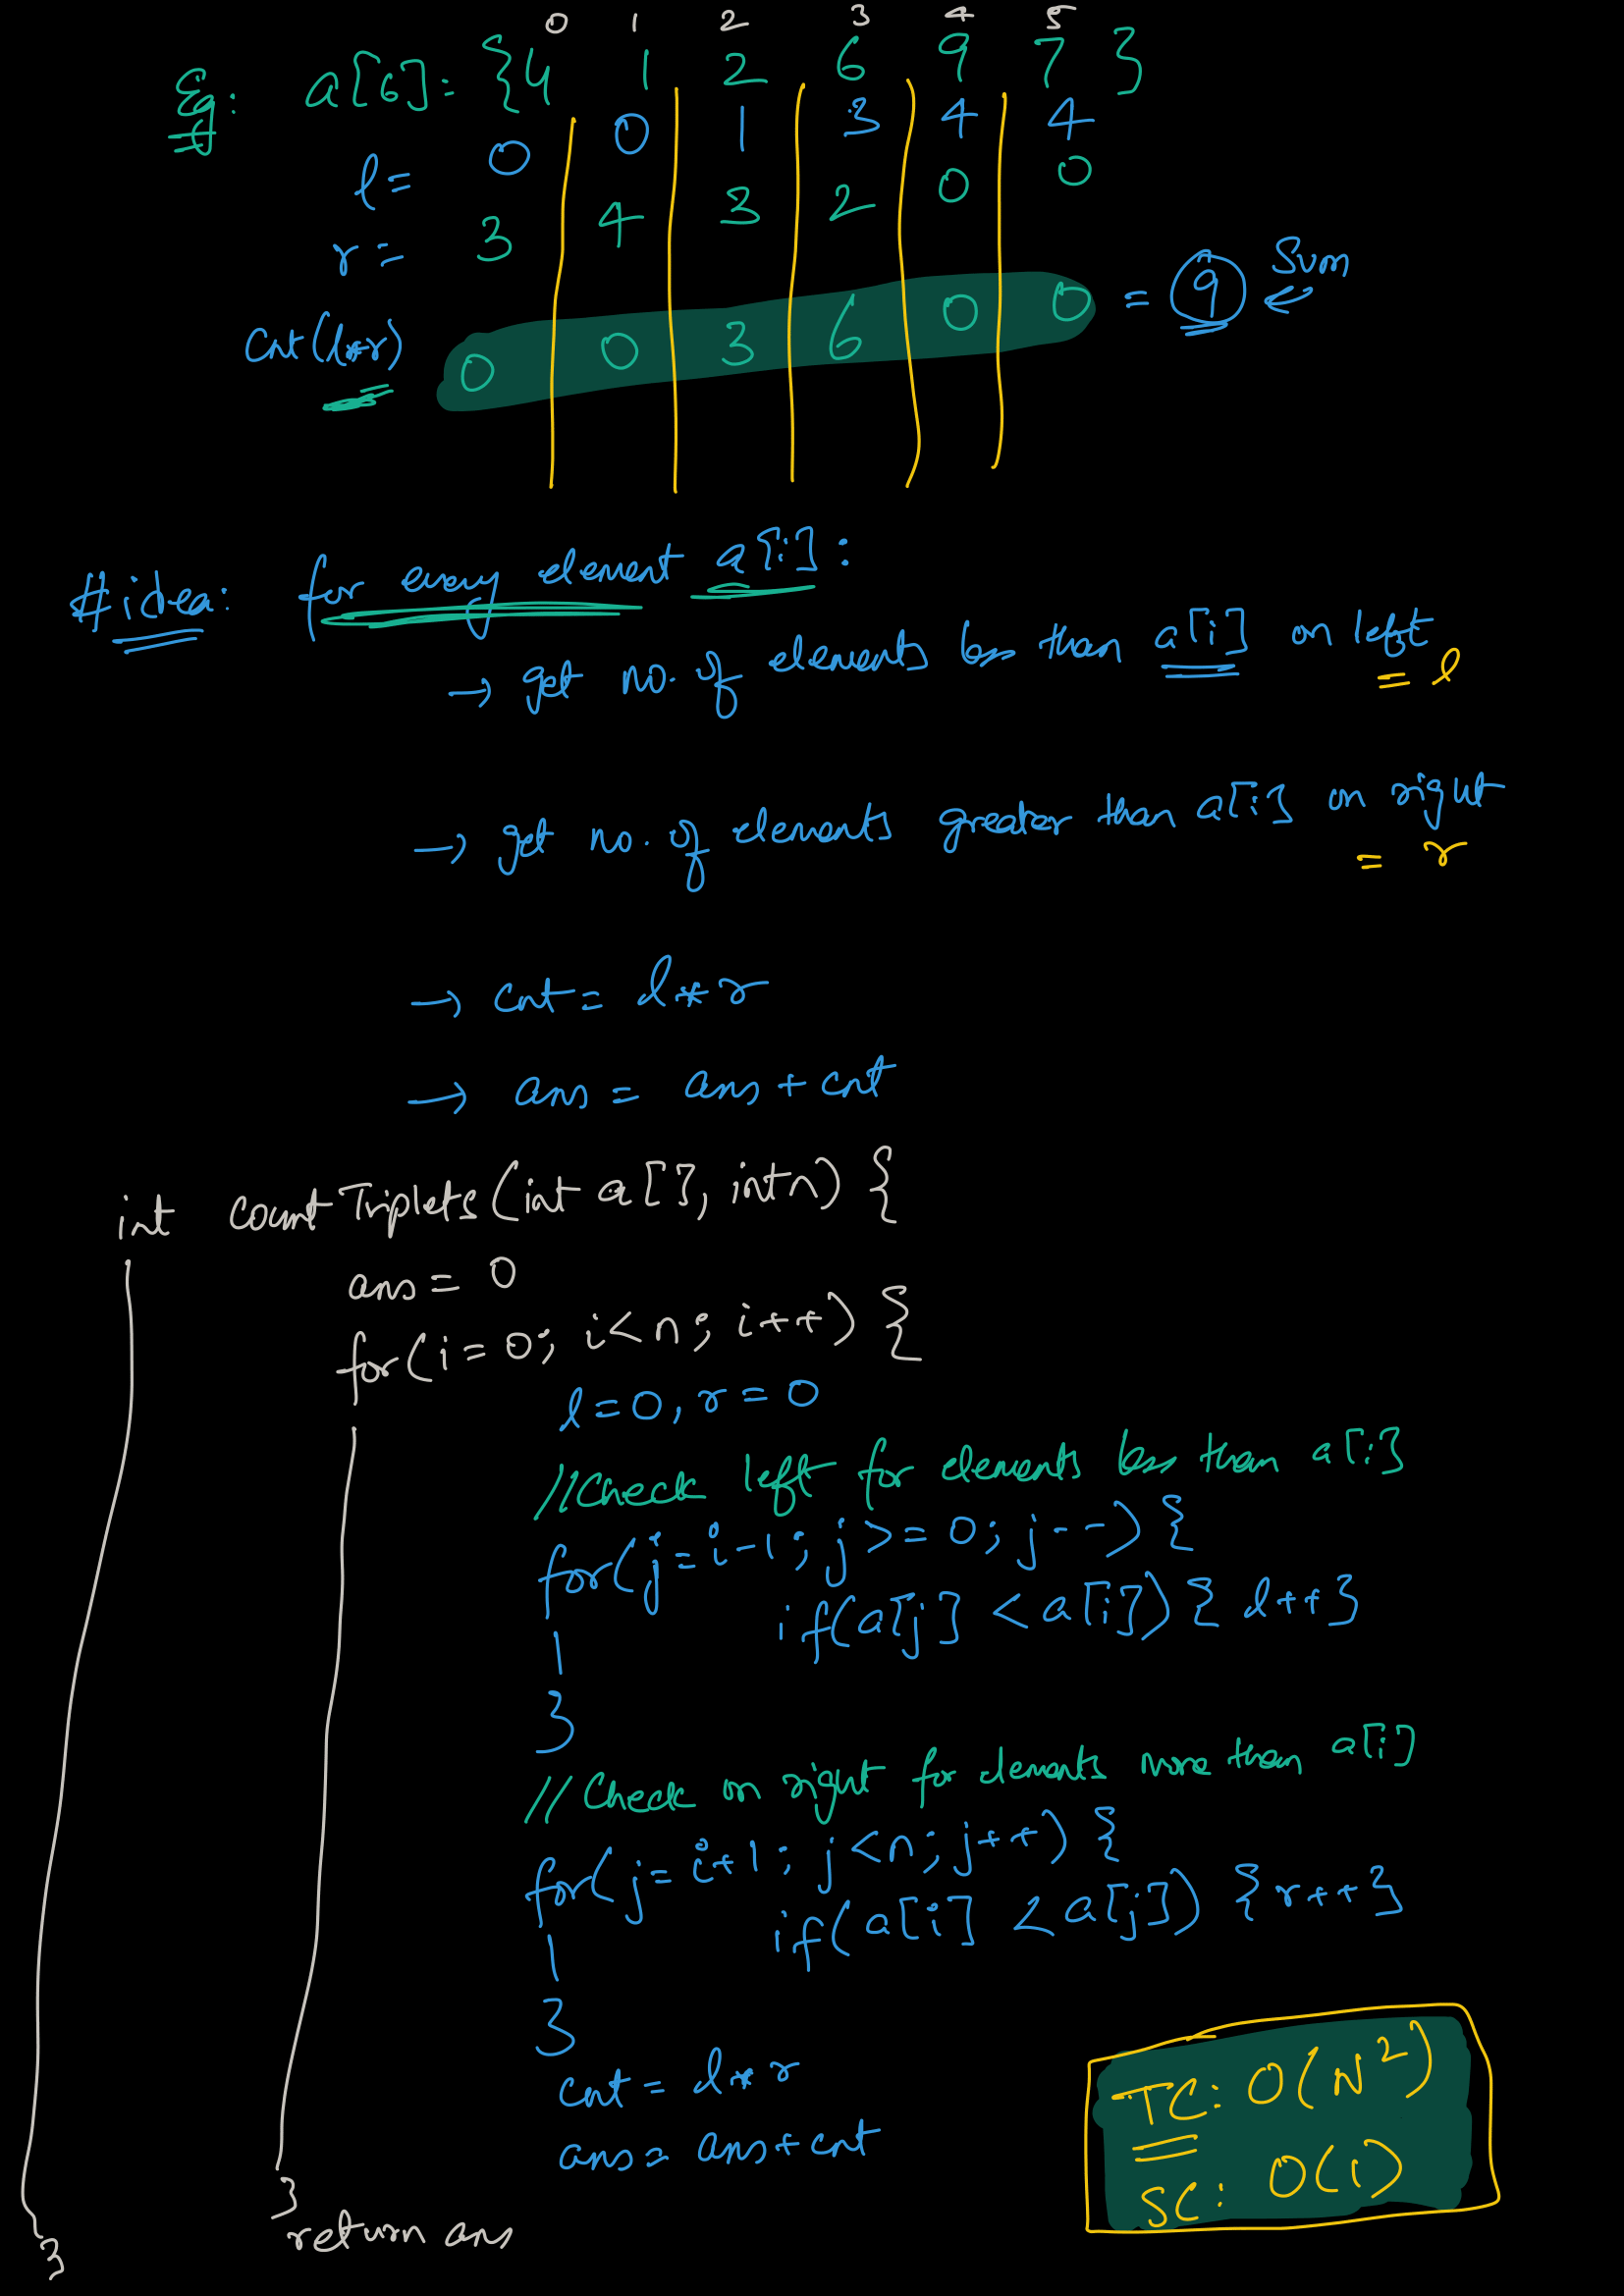 0 1 2 3 4 5
Eg: a[6] = {4 1 2 6 9 7 }
l = 0 0 1 3 4 4
r = 3 4 3 2 0 0
Cnt(l*r) 0 0 3 6 0 0 = 9 Sum
#idea: for every element a[i]:
→ get no. of elements less than a[i] on left
= l
→ get no. of elements greater than a[i] on right
= r
→ cnt = l * r
→ ans = ans + cnt
int countTriplets(int a[], int n) {
ans = 0
for(i = 0; i < n; i++) {
l = 0, r = 0
//Check left for elements less than a[i]
for(j = i-1; j >= 0; j--) {
if(a[j] < a[i]) { l++ }
}
//Check on right for elements more than a[i]
for(j = i+1; j < n; j++) {
if(a[i] < a[j]) {r++}
}
cnt = l * r
ans = ans + cnt
TC: O(N²)
SC: O(1)
}
return ans
}